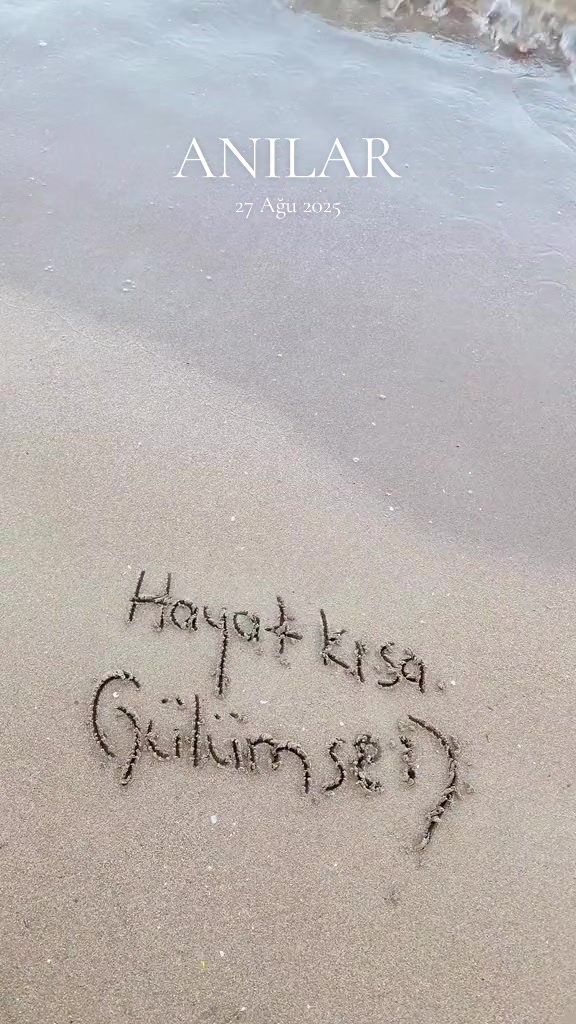 ANILAR
27 Ağu 2025
Hayat kısa.
Gülümse :)